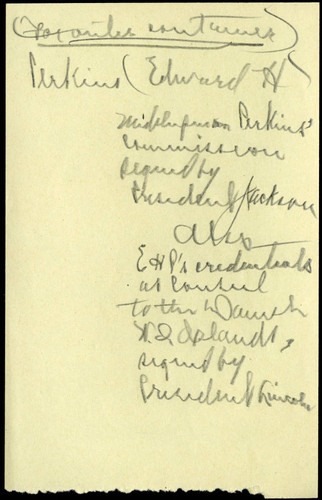 (For outer container)
Perkins (Edward H)
Midshipman Perkins'
commission
signed by
President Jackson
Also
EHP's credentials
as Consul
to the Danish
W.I. Islands,
signed by
President Lincoln